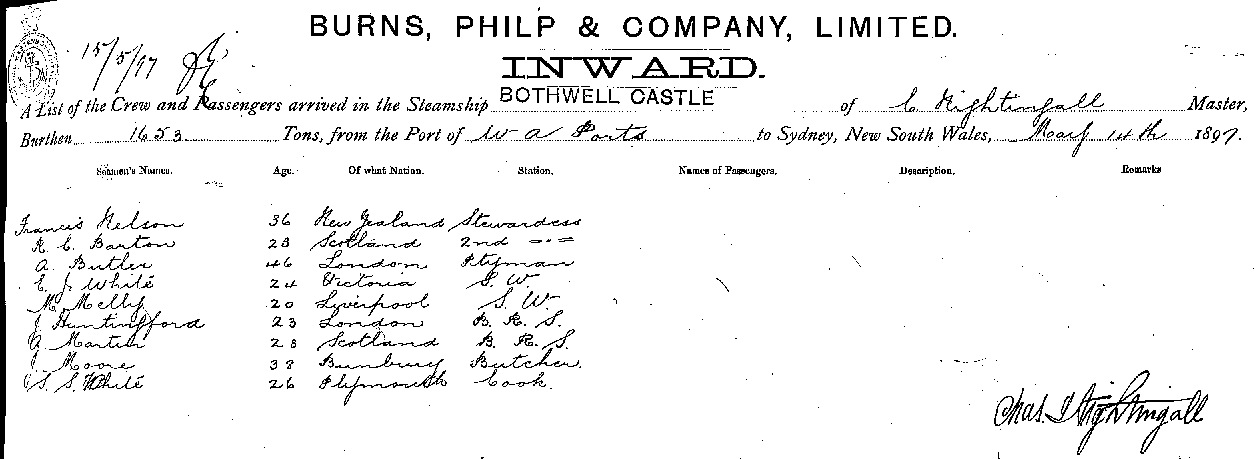 BURNS, PHILP & COMPANY, LIMITED.
15/5/97
INWARD.
A List of the Crew and Passengers arrived in the Steamship BOTHWELL CASTLE of C Nightingall Master,
Burthen 1653 Tons, from the Port of W A Ports to Sydney, New South Wales, May 14th 1897.
Seamen's Names. Age. Of what Nation. Station. Names of Passengers. Description. Remarks
Francis Nelson 36 New Zealand Stewardess
R. C. Barton 28 Scotland 2nd -"-
A. Butler 46 London
E. J. White 24 Victoria S. W.
M. Melly 20 Liverpool S. W.
J Huntingford 23 London B. R. S.
A. Martin 28 Scotland B. R. S.
J. Moore 38 Bunbury Butcher.
S. White 26 Plymouth Cook.
Chas. Nightingall